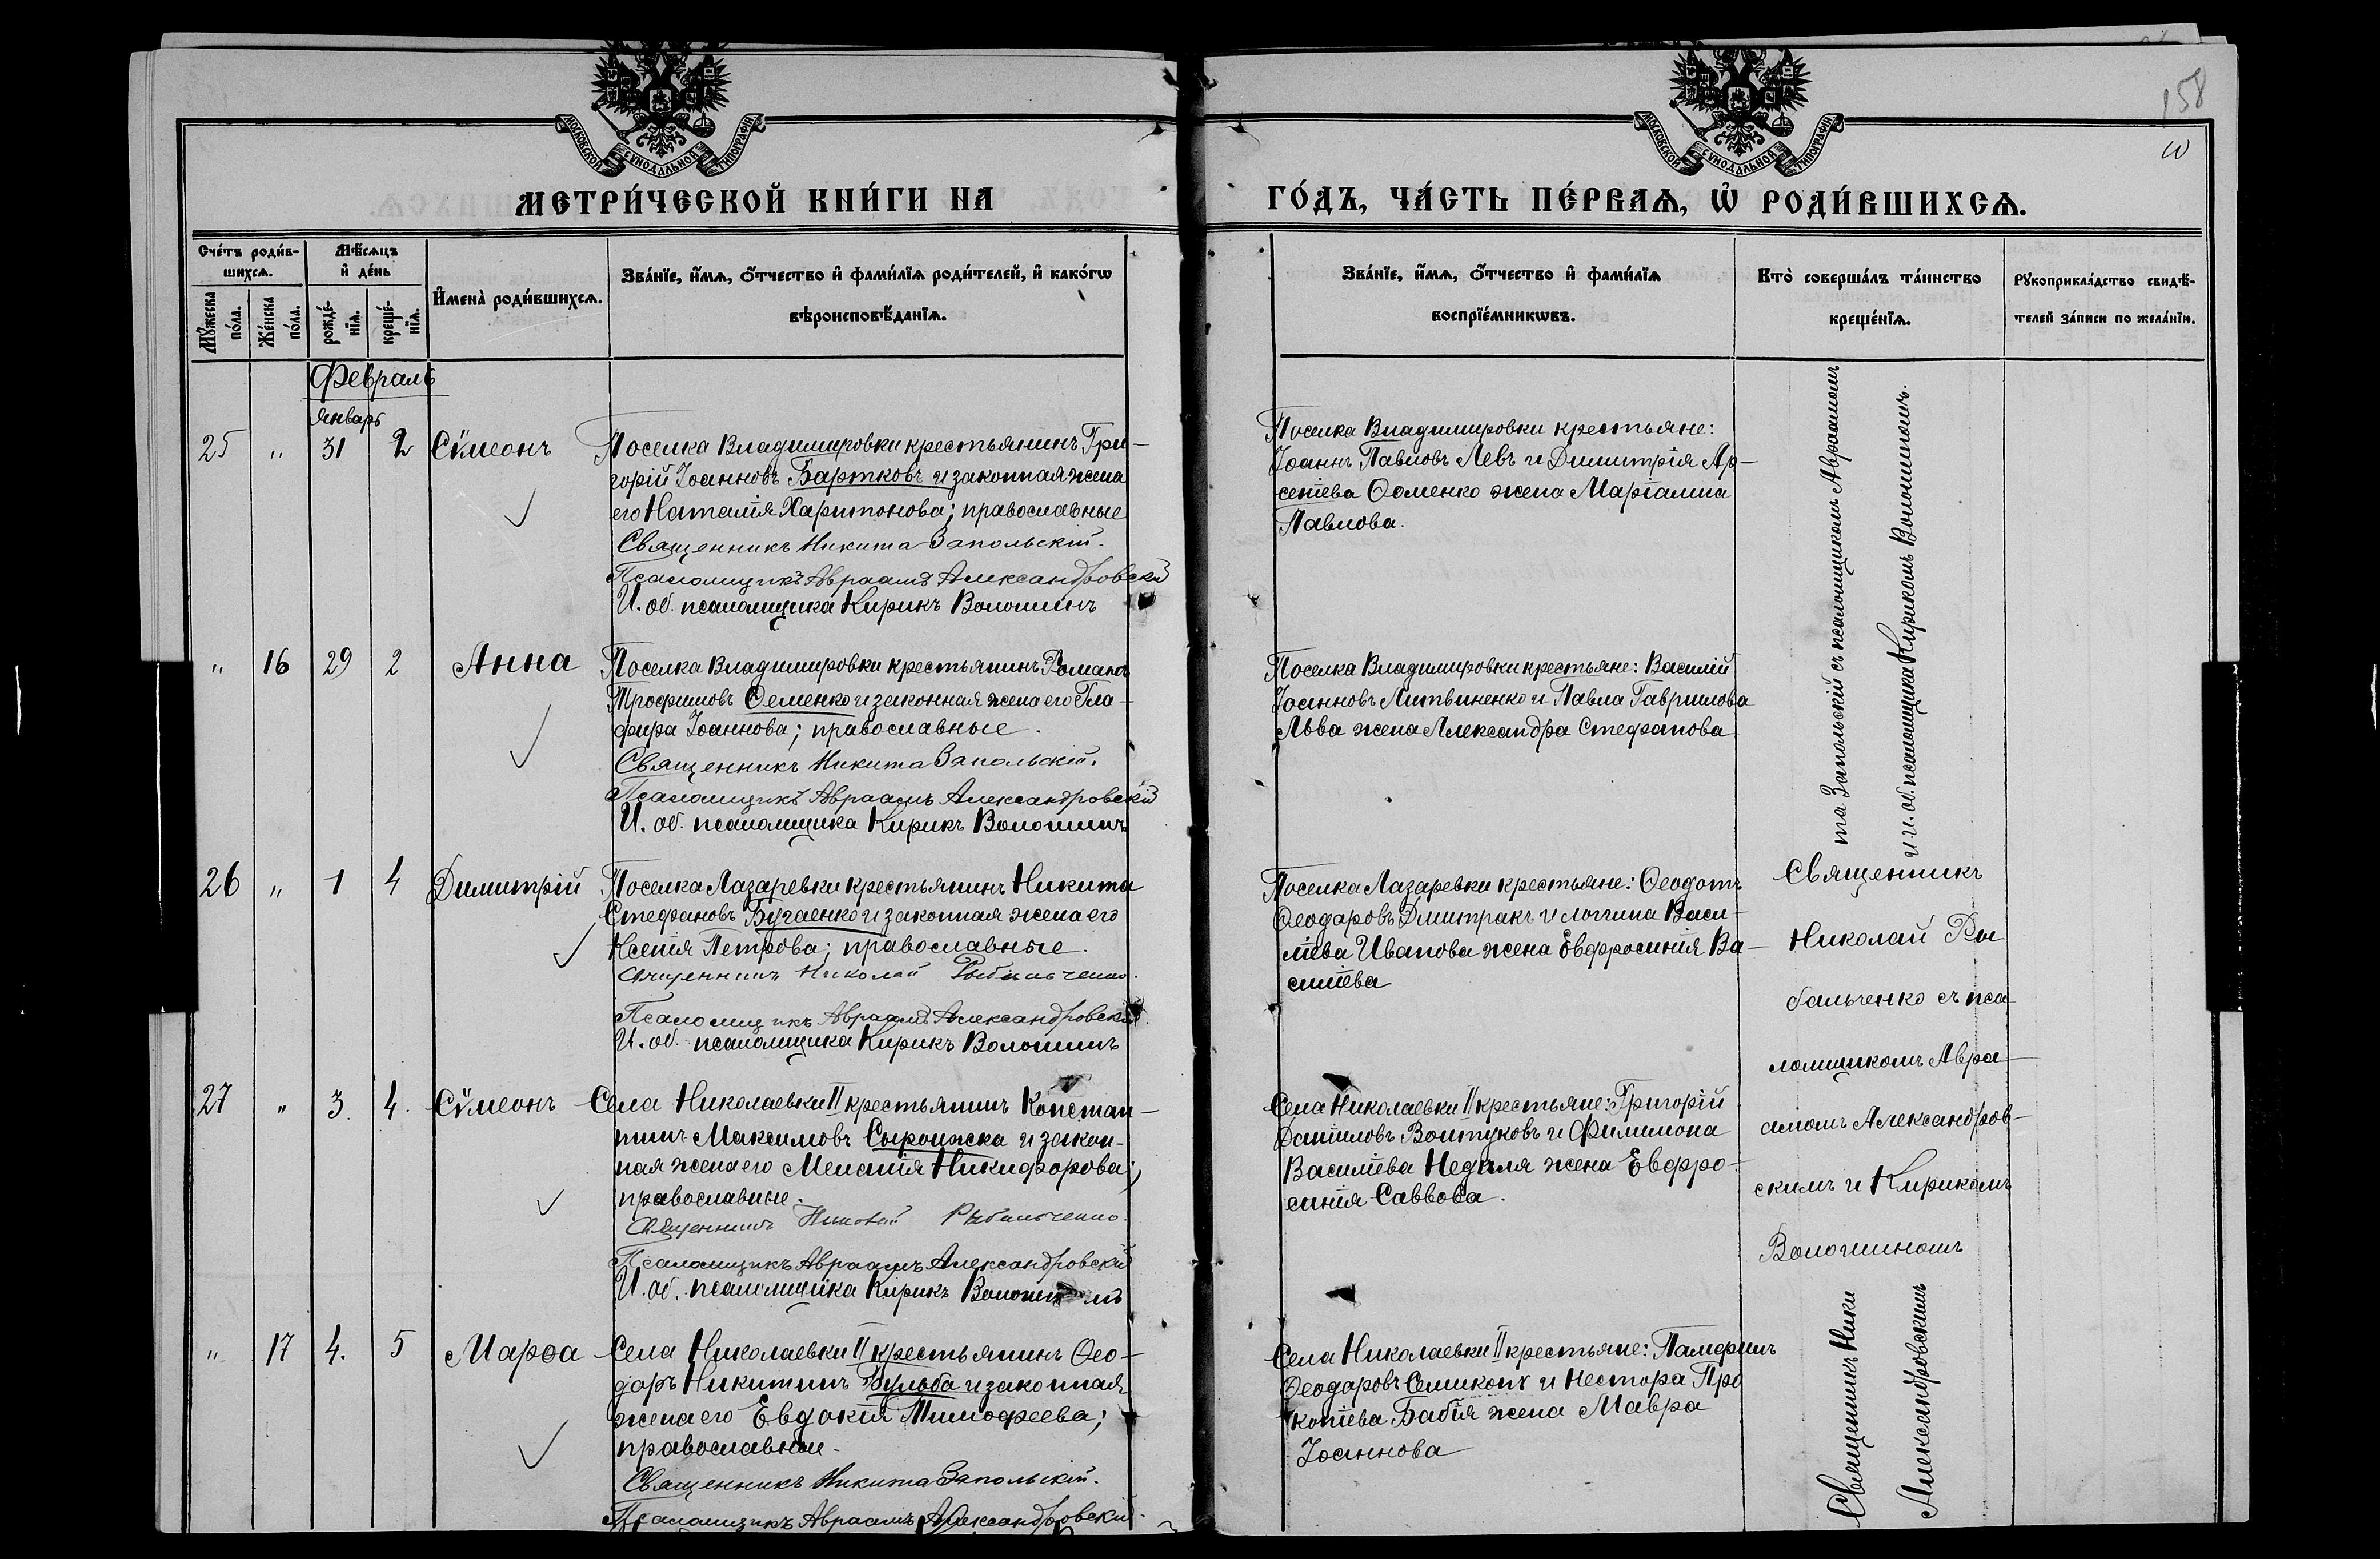 158
МОСКОВСКОЙ СѴНОДАЛЬНОЙ ТИПОГРАФІИ
МОСКОВСКОЙ СѴНОДАЛЬНОЙ ТИПОГРАФІИ
МЕТРИ́ЧЕСКОЙ КНИ́ГИ НА
ГО́ДЪ, ЧА́СТЬ ПЕ́РВАѦ, Ѡ҆ РОДИ́ВШИХСѦ.
Сче́тъ роди́в-
шихсѧ.
Мѣ́сѧцъ
и҆ де́нь
Мꙋ́жеска
по́ла.
Же́нска
по́ла.
рожде́-
нїѧ.
креще́-
нїѧ.
И҆мена̀ роди́вшихсѧ.
Зва́нїе, и҆́мѧ, ѻ҆́тчество и҆ фами́лїѧ роди́телей, и҆ како́гѡ
вѣроисповѣ́данїѧ.
Зва́нїе, и҆́мѧ, ѻ҆́тчество и҆ фами́лїѧ
воспрїе́мникѡвъ.
Кто̀ соверша́лъ та́инство
креще́нїѧ.
Рꙋкоприкла́дство свидѣ́-
телей за́писи по жела́нїю.
Февраль
Январь
25 " 31 2 Сѵмеонъ
Поселка Владимировки крестьянинъ Гри-
горій Іоанновъ Бартковъ и законная жена
его Наталія Харитонова; православные
Священникъ Никита Запольскій.
Псаломщикъ Авраамъ Александровскій
И. об. псаломщика Кирикъ Волошинъ
Поселка Владимировки крестьяне:
Іоаннъ Павловъ Левъ и Димитрія Ар-
сеніева Ѳоменко жена Маріамна
Павлова.
" 16 29 2 Анна
Поселка Владимировки крестьянинъ Романъ
Трофимовъ Семенко и законная жена его Гла-
фира Іоаннова; православные.
Священникъ Никита Запольскій.
Псаломщикъ Авраамъ Александровскій
И. об. псаломщика Кирикъ Волошинъ
Поселка Владимировки крестьяне: Василій
Іоанновъ Литвиненко и Павла Гаврилова
Льва жена Александра Стефанова
та Запольскій съ псаломщикомъ Авраамомъ
и и. об. псаломщика Кирикомъ Волошиномъ.
26 " 1 4 Димитрій
Поселка Лазаревки крестьянинъ Никита
Стефановъ Бугаенко и законная жена его
Ксенія Петрова; православные.
Священникъ Николай Рыбальченко.
Псаломщикъ Авраамъ Александровскій
И. об. псаломщика Кирикъ Волошинъ
Поселка Лазаревки крестьяне: Ѳеодотъ
Ѳеодоровъ Дмитракъ и Логгина Васи-
ліева Иванова жена Евфросинія Ва-
силіева
Священникъ
Николай Ры
бальченко съ пса-
ломщикомъ Авра-
амомъ Александров-
скимъ и Кирикомъ
Волошиномъ
27 " 3. 4. Сѵмеонъ
Села Николаевки II крестьянинъ Констан-
тинъ Максимовъ Сыроижка и закон-
ная жена его Меланія Никифорова;
православные.
Священникъ Николай Рыбальченко.
Псаломщикъ Авраамъ Александровскій
И. об. псаломщика Кирикъ Волошинъ
Села Николаевки II крестьяне: Григорій
Даніиловъ Войтуковъ и Филимона
Василіева Недѣля жена Евфро-
синія Саввова.
" 17 4. 5 Марѳа
Села Николаевки II крестьянинъ Ѳео-
доръ Никитинъ Бульба и законная
жена его Евдокія Тимофеева;
православные.
Священникъ Никита Запольскій.
Псаломщикъ Авраамъ Александровскій.
Села Николаевки II крестьяне: Памфилъ
Ѳеодоровъ Семикопъ и Нестора Про
копіева Бабія жена Мавра
Іоаннова
Священникъ Ники
Александровскимъ